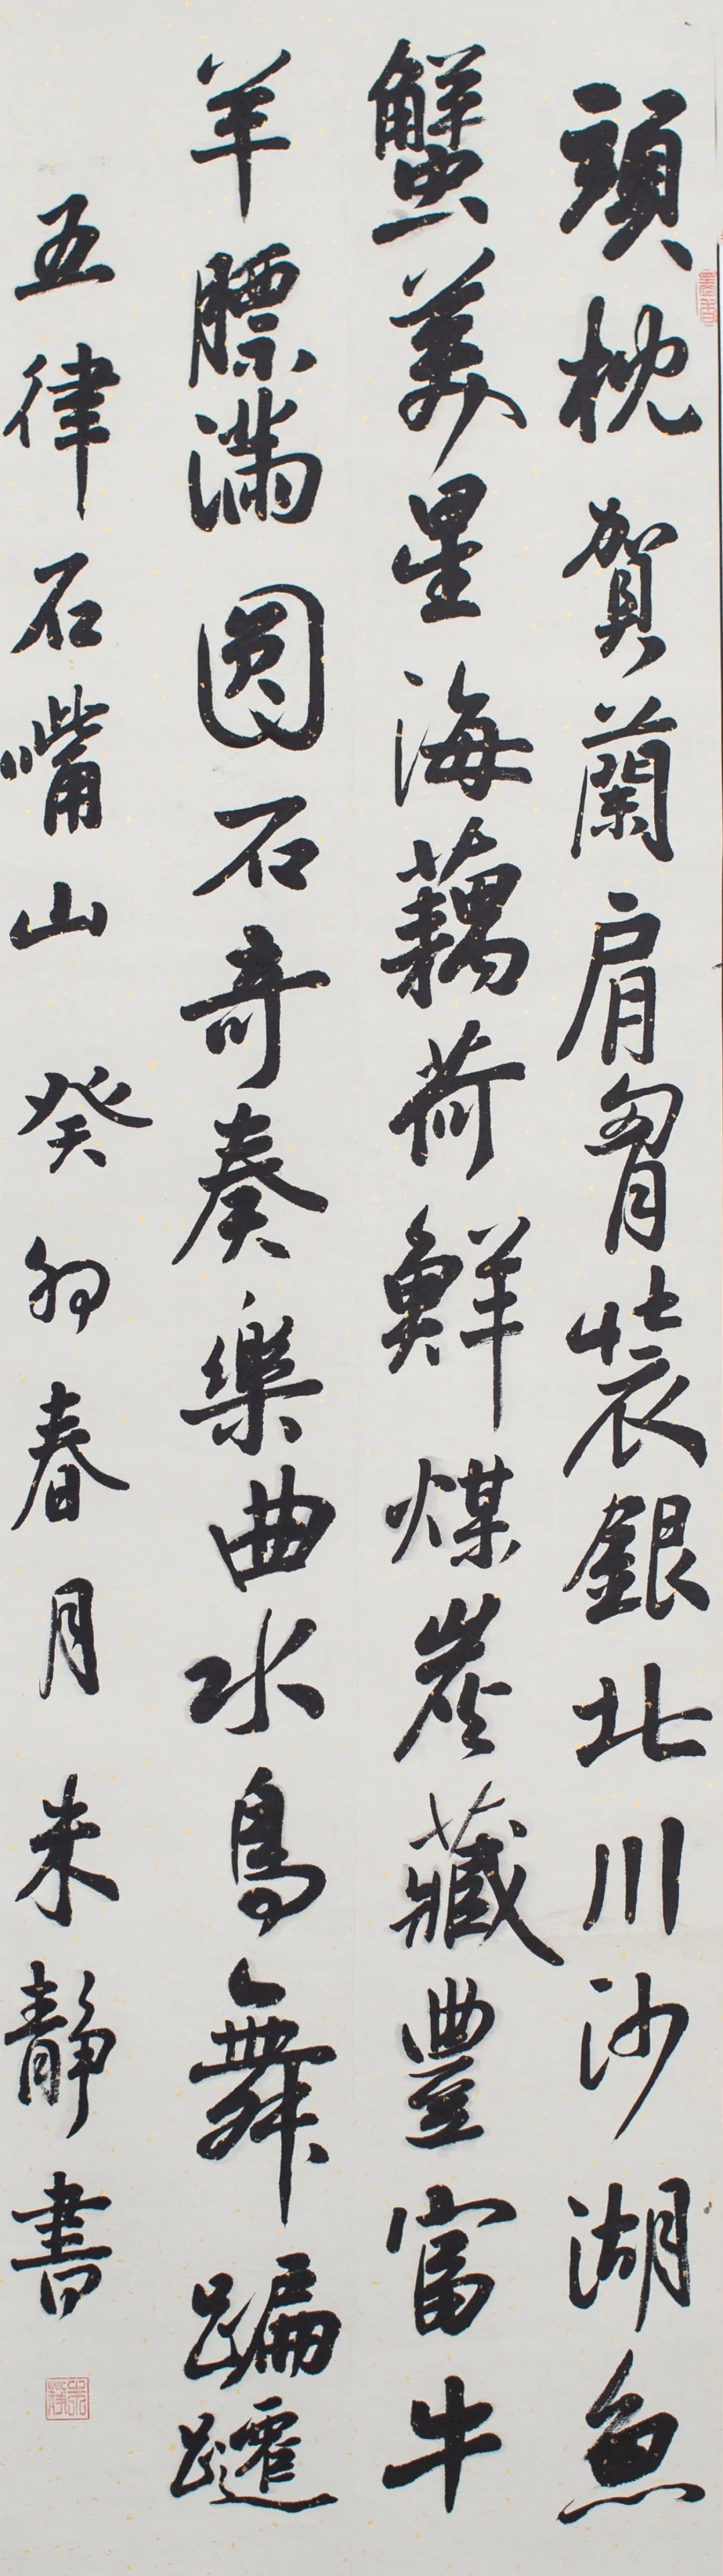 頭枕賀蘭肩胷裝銀北川沙湖魚
蟹美星海藕荷鮮煤炭藏豐富牛
羊膘滿圓石奇奏樂曲水鳥舞蹁躚
五律石嘴山 癸卯春月 朱靜書